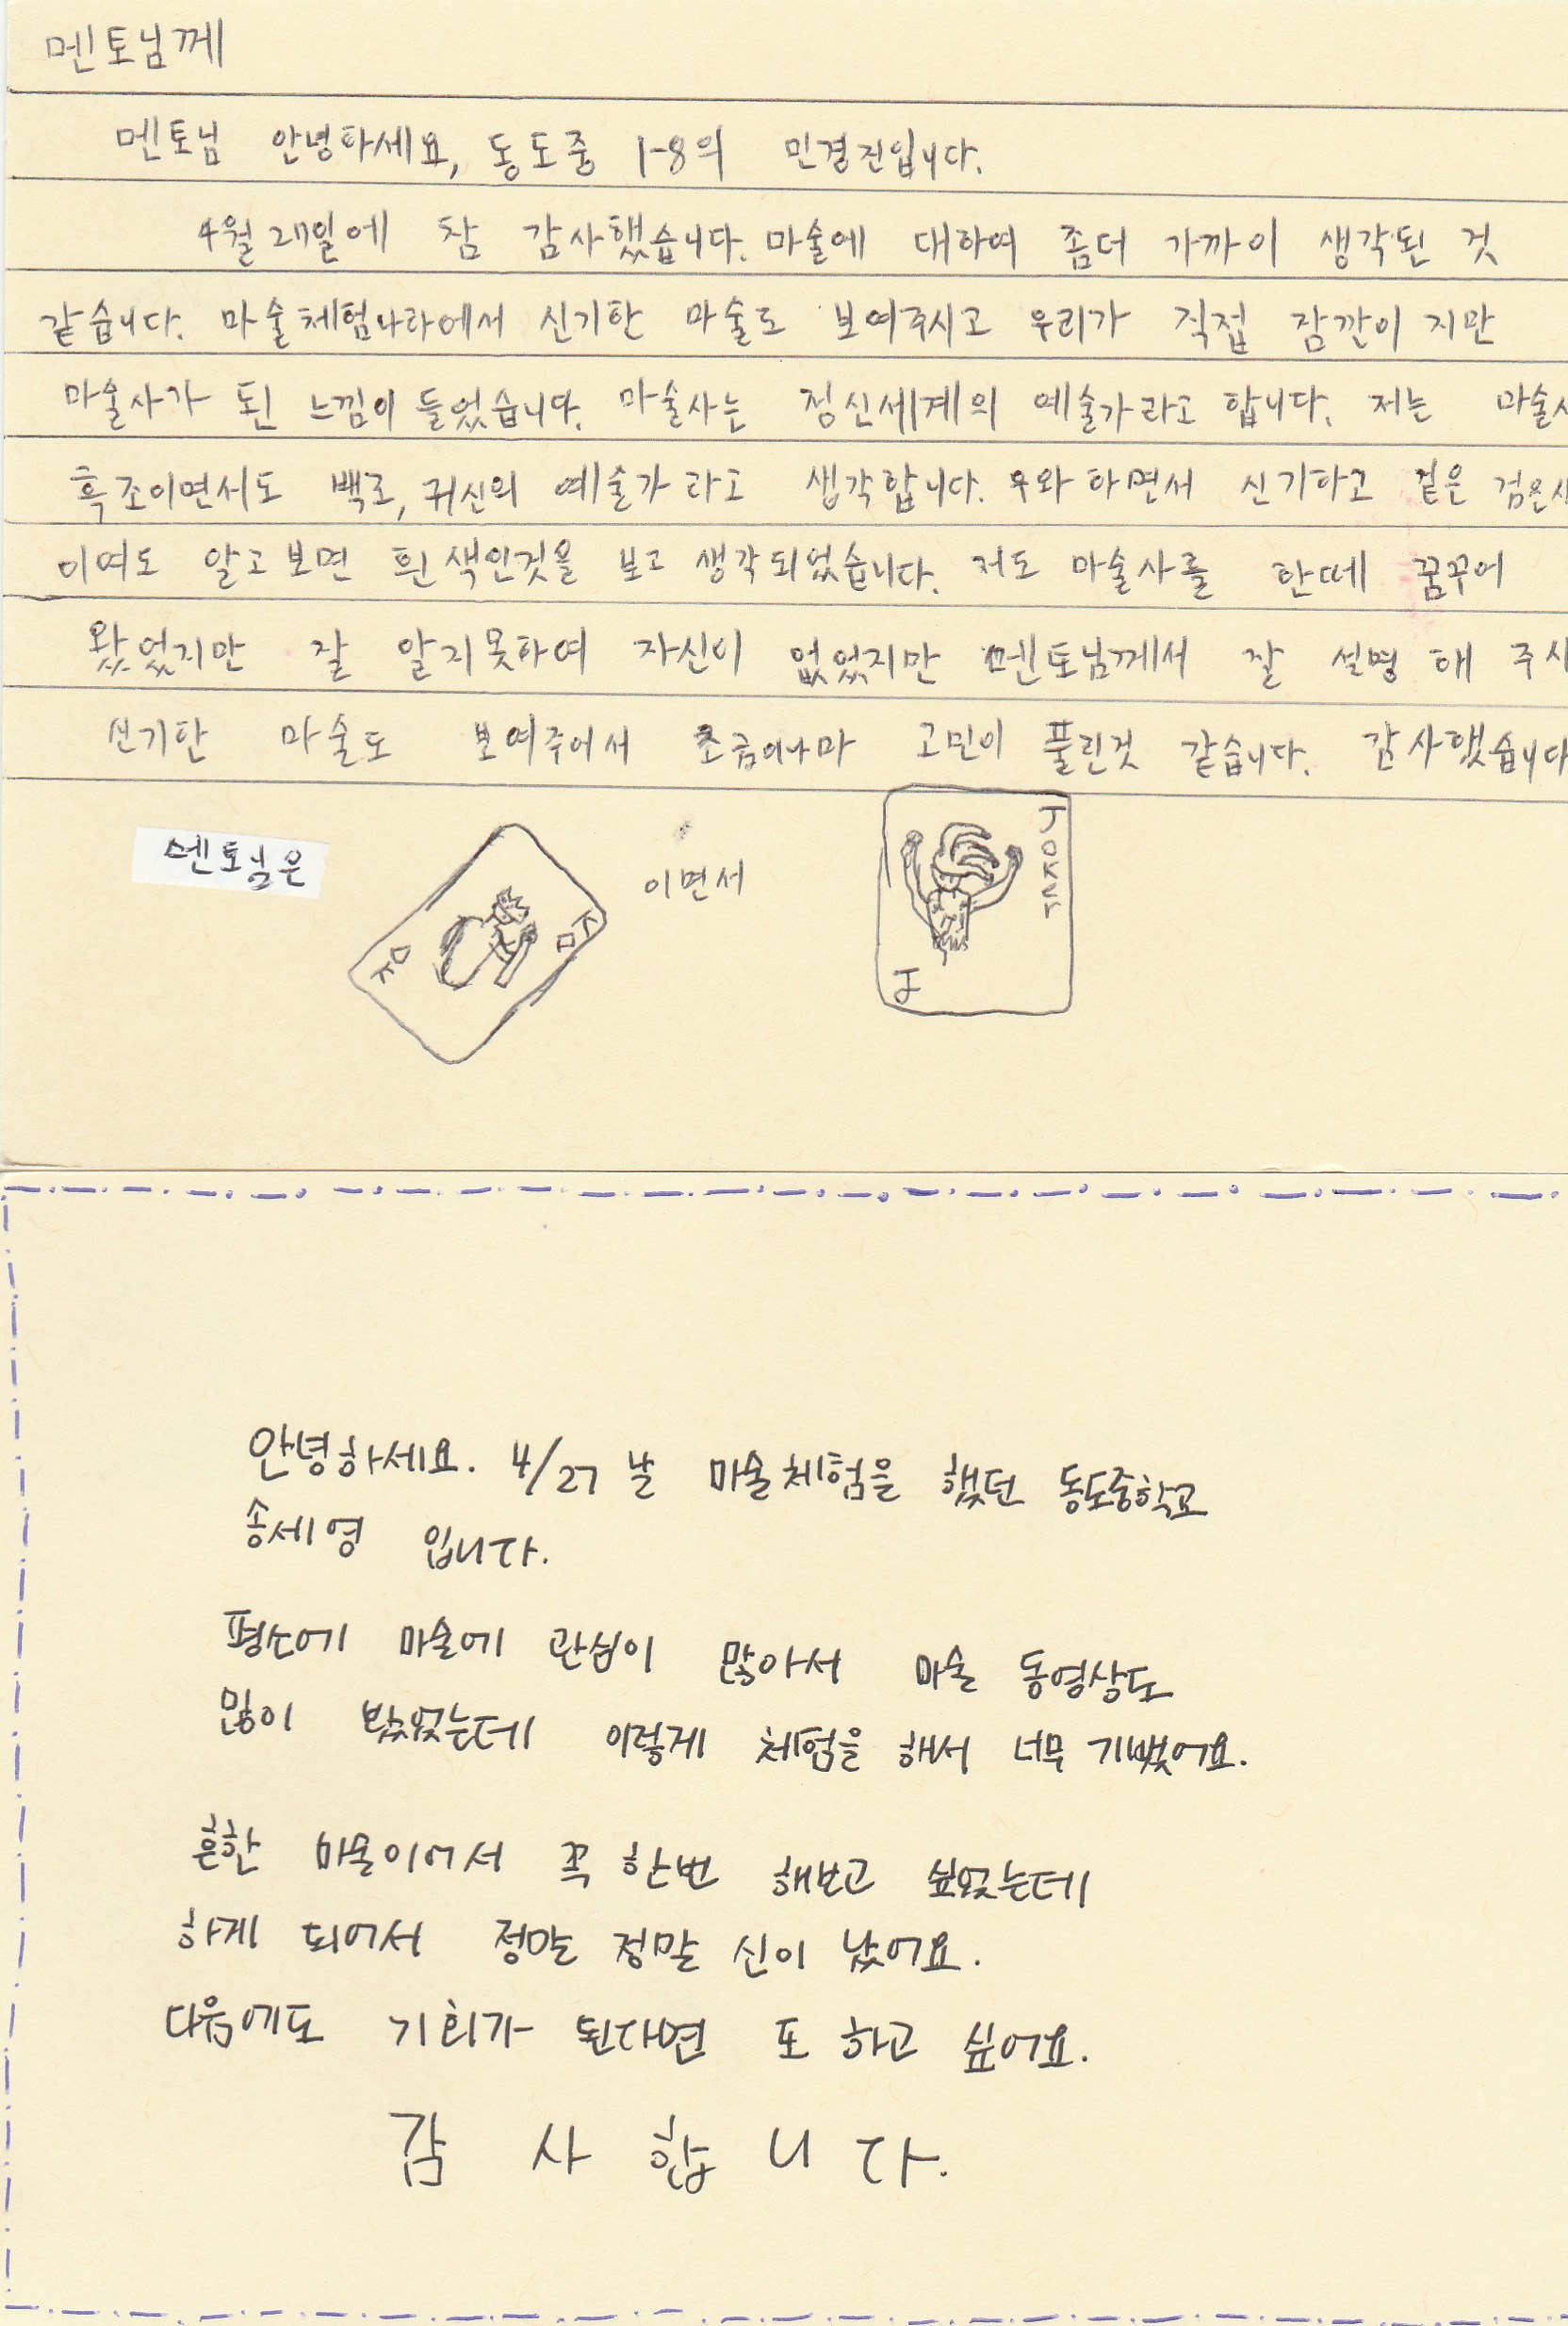 멘토님께
멘토님 안녕하세요, 동도중 1-8의 민경진입니다.
4월 27일에 참 감사했습니다. 마술에 대하여 좀더 가까이 생각된 것
같습니다. 마술체험나라에서 신기한 마술도 보여주시고 우리가 직접 잠깐이지만
마술사가 된 느낌이 들었습니다. 마술사는 정신세계의 예술가라고 합니다. 저는 마술사
흑조이면서도 백조, 귀신의 예술가라고 생각합니다. 우와 하면서 신기하고 겉은 검은
이여도 알고보면 흰색인것을 보고 생각되었습니다. 저도 마술사를 한때 꿈꾸어
왔었지만 잘 알지못하여 자신이 없었지만 멘토님께서 잘 설명해 주시
신기한 마술도 보여주어서 조금이나마 고민이 풀린것 같습니다. 감사했습니다
멘토님은 K K 이면서 JOKER J
안녕하세요. 4/27 날 마술체험을 했던 동도중학교
송세영 입니다.
평소에 마술에 관심이 많아서 마술 동영상도
많이 봤었는데 이렇게 체험을 해서 너무 기뻤어요.
흔한 마술이어서 꼭 한번 해보고 싶었는데
하게 되어서 정말 정말 신이 났어요.
다음에도 기회가 된다면 또 하고 싶어요.
감사합니다.